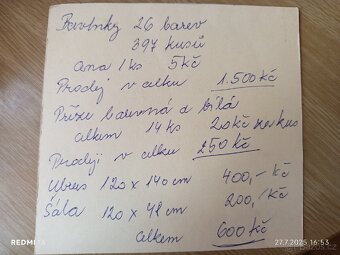 Bavlnky 26 barev
397 kusů
Cena 1 ks 5 Kč
Prodej v celku 1.500 Kč
Příze barevná a bílá
celkem 14 ks 20 Kč za kus
Prodej v celku 250 Kč
Ubrus 120 x 140 cm 400,- Kč
Šála 120 x 48 cm 200,- Kč
Celkem 600 Kč
REDMI
27.7.2025 16:53